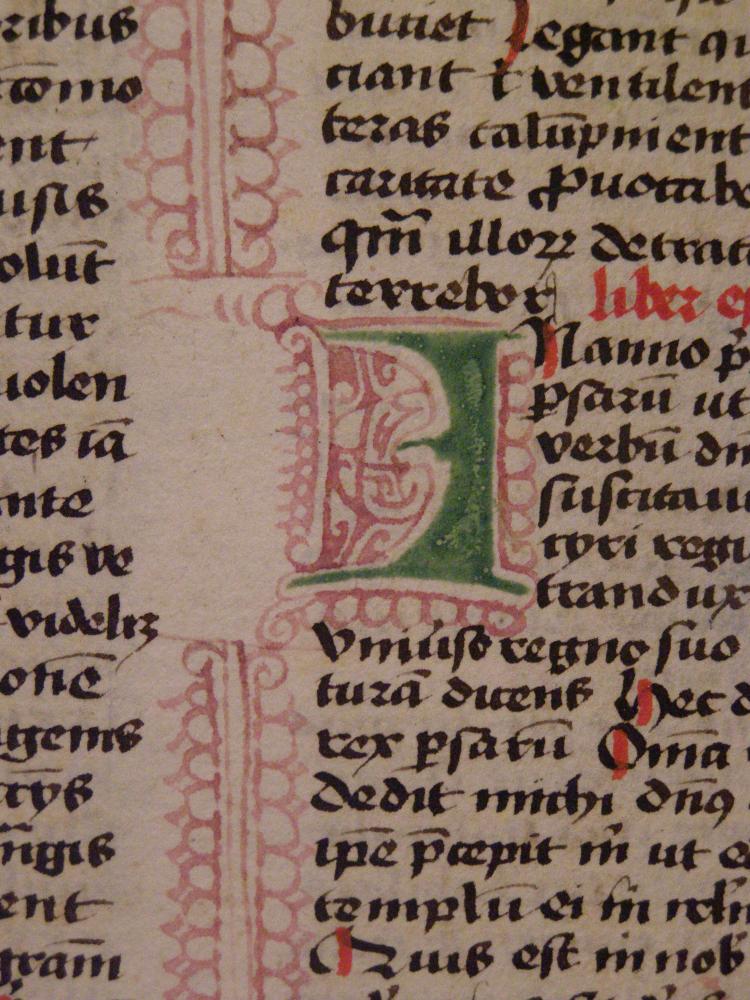 ribus
como
ent
uisis
olūt
tur
uolen
tes iā
nte
gis ve
videliz
onē
gems
ctys
ngis
ent
gram
butiet legant qu
ciant et ventilent
teras calūpnient
caritate Prouocabo
qm̄ illorꝝ detract
terrebor liber e
I Nanno p̄
psarū ut
verbū dn
suscitaui
cyri regi
trandux
vniuso regno suo
turā dicens Hec d
rex psarū Om̄a
dedit michi dn̄s
ipē p̄cepit m̄ ut e
templū ei in
Quis est in nob